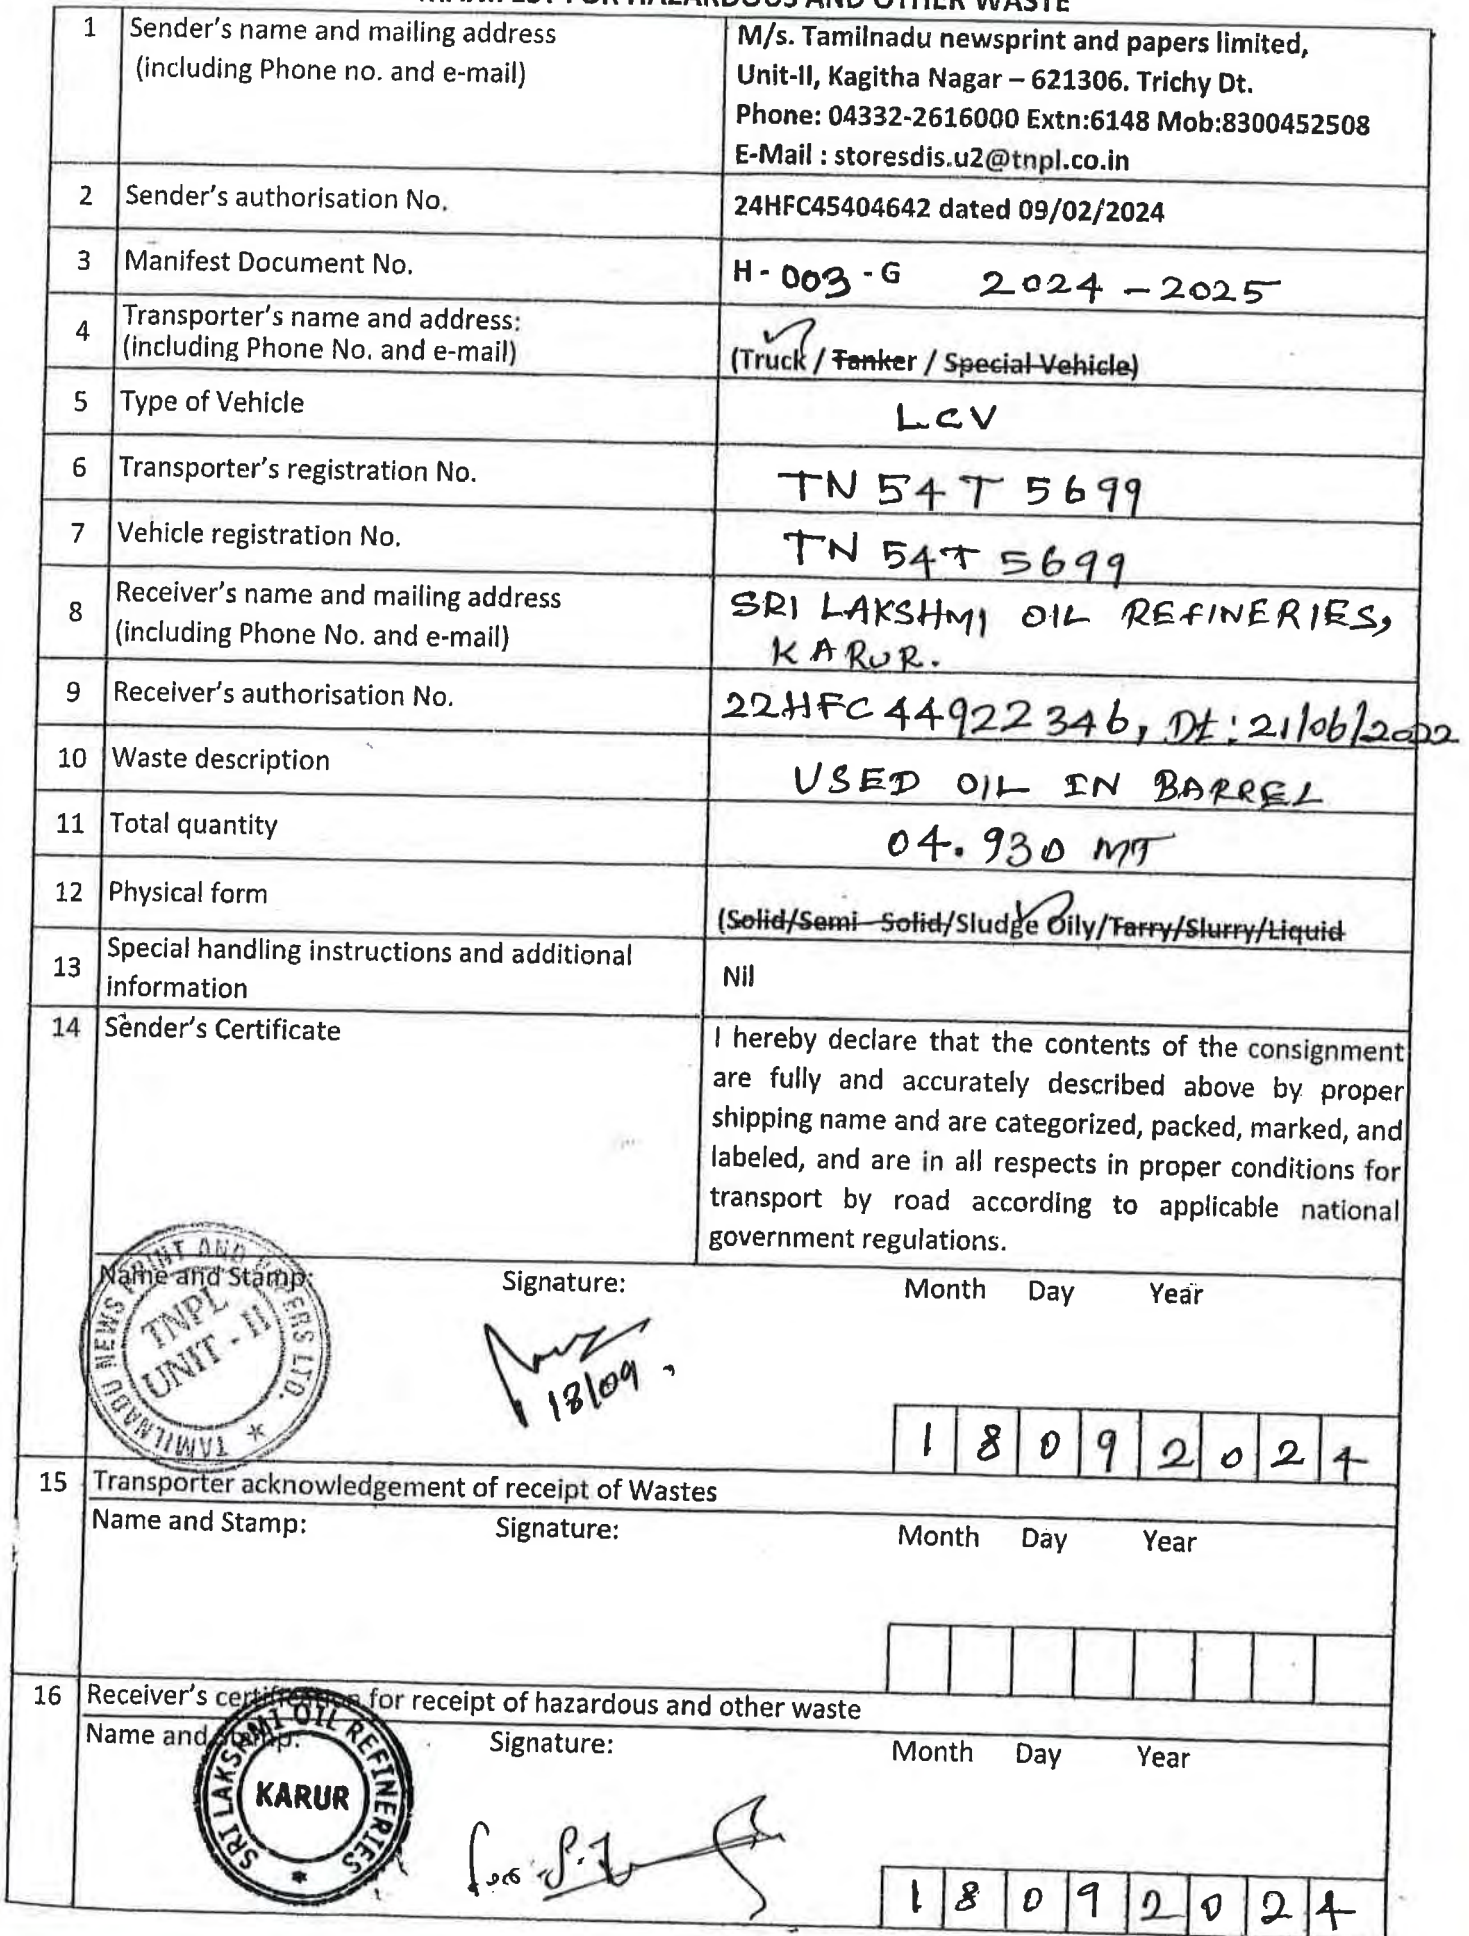 MANIFEST FOR HAZARDOUS AND OTHER WASTE
1 Sender's name and mailing address
(including Phone no. and e-mail)
M/s. Tamilnadu newsprint and papers limited,
Unit-II, Kagitha Nagar – 621306. Trichy Dt.
Phone: 04332-2616000 Extn:6148 Mob:8300452508
E-Mail : storesdis.u2@tnpl.co.in
2 Sender's authorisation No. 24HFC45404642 dated 09/02/2024
3 Manifest Document No. H - 003 - G 2024 - 2025
4 Transporter's name and address:
(including Phone No. and e-mail)
(Truck / Tanker / Special Vehicle)
5 Type of Vehicle LCV
6 Transporter's registration No. TN 54 T 5699
7 Vehicle registration No. TN 54T 5699
8 Receiver's name and mailing address
(including Phone No. and e-mail)
SRI LAKSHMI OIL REFINERIES,
KARUR.
9 Receiver's authorisation No. 22HFC44922346, Dt: 21/06/2022
10 Waste description USED OIL IN BARREL
11 Total quantity 04.930 MT
12 Physical form (Solid/Semi Solid/Sludge Oily/Tarry/Slurry/Liquid
13 Special handling instructions and additional
information
Nil
14 Sender's Certificate
I hereby declare that the contents of the consignment
are fully and accurately described above by proper
shipping name and are categorized, packed, marked, and
labeled, and are in all respects in proper conditions for
transport by road according to applicable national
government regulations.
Name and Stamp: Signature: Month Day Year
TAMILNADU NEWS PRINT AND PAPERS LTD.
TNPL
UNIT - II
18/09
1 8 0 9 2 0 2 4
15 Transporter acknowledgement of receipt of Wastes
Name and Stamp: Signature: Month Day Year
16 Receiver's certification for receipt of hazardous and other waste
Name and Stamp: Signature: Month Day Year
SRI LAKSHMI OIL REFINERIES
KARUR
1 8 0 9 2 0 2 4